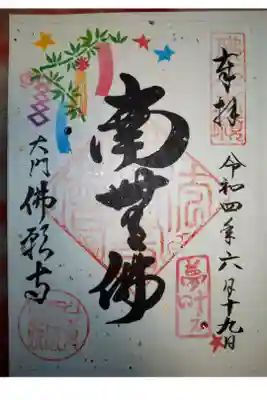 奉拝
令和四年六月十九日
南無佛
大門
佛願寺
夢叶う